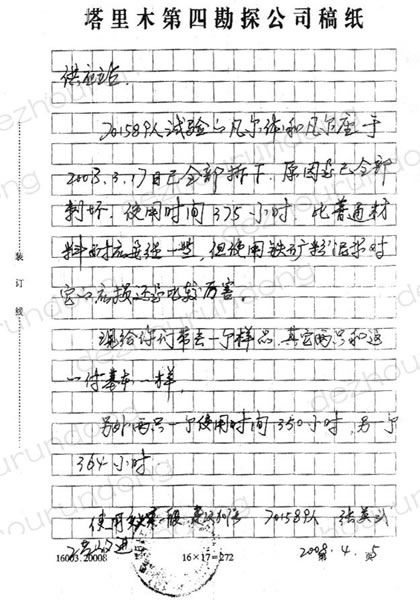 塔里木第四勘探公司稿纸
供应站:
70158队试验的凡尔体和凡尔座于
2008.3.17日已全部拆下,原因是已全部
刺坏,使用时间375小时,比普通材
料耐磨强一些,但使用铁矿粉泥浆对
它的磨损还是比较厉害。
现给你们带去一个样品,其它两只和这
一付基本一样,
另外两只一个使用时间350小时,另一个
364小时
使用效果一般 70158队
2008.4.5
装订线
16003.20008
16×17=272
dezhou
rundong